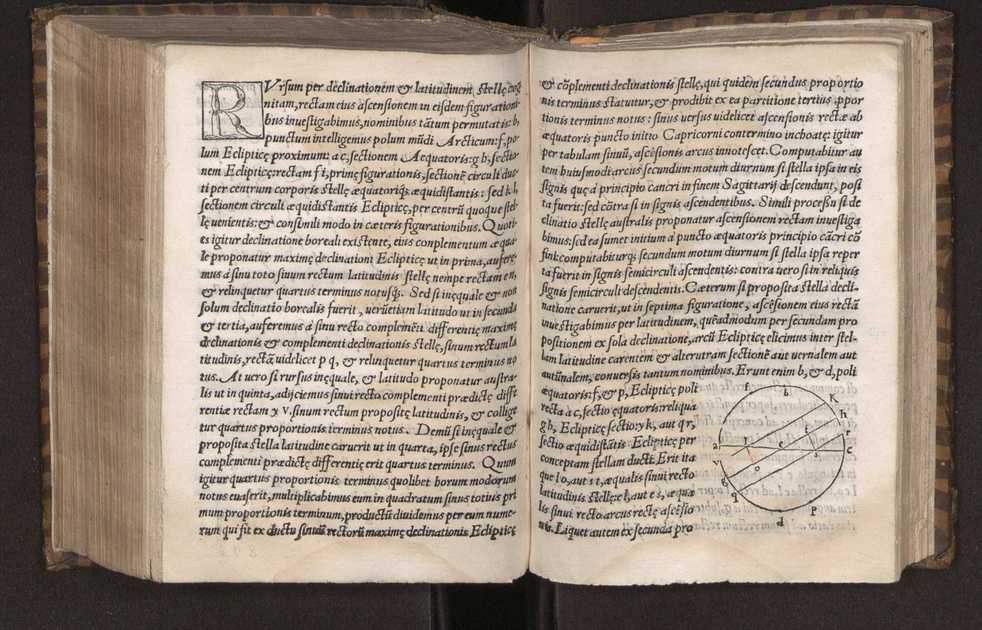 RUrsum per declinationem & latitudinem stellę cog
nitam, rectam eius ascensionem in eisdem figurationi
bus inuestigabimus, nominibus tātum permutatis: b,
punctum intelligemus polum mūdi Arcticum: f, po
lum Eclipticę proximum: a c, sectionem Aequatoris: g h, sectio
nem Eclipticę: rectam f i, primę figurationis, sectionē circuli duc
ti per centrum corporis stellę æquatoriq́; æquidistantis: sed k l,
sectionem circuli æquidistantis Eclipticę, per centrū quoque stel
lę uenientis: & consimili modo in cæteris figurationibus. Quoti
es igitur declinatione boreali existente, eius complementum æqua
le proponatur maximę declinationi Eclipticę ut in prima, aufere
mus à sinu toto sinum rectum latitudinis stellę nempe rectam en,
& relinquetur quartus terminus notusq́;. Sed si inęquale & non
solum declinatio borealis fuerit, uerūetiam latitudo ut in secunda
& tertia, auferemus à sinu recto complemēti differentię maximę
declinationis & complementi declinationis stellę, sinum rectum la
titudinis, rectā uidelicet p q, & relinquetur quartus terminus no
tus. At uero si rursus inęquale, & latitudo proponatur austra-
lis ut in quinta, adijciemus sinui recto complementi prædictę diffe
rentiæ rectam x v. sinum rectum propositę latitudinis, & collige
tur quartus proportionis terminus notus. Demū si inęquale &
proposita stella latitudine caruerit ut in quarta, ipse sinus rectus
complementi prædictę differentię erit quartus terminus. Quum
igitur quartus proportionis terminus quolibet horum modorum
notus euaserit, multiplicabimus eum in quadratum sinus totius pri
mum proportionis terminum, productū diuidemus per eum nume-
rum qui fit ex ductu sinuū rectorū maximę declinationis Eclipticę
& cōplementi declinationis stellę, qui quidem secundus proportio
nis terminus statutur, & prodibit ex ea partitione tertius ppor
tionis terminus notus: sinus uersus uidelicet ascensionis rectæ ab
æquatoris puncto initio Capricorni contermino inchoatę: igitur
per tabulam sinuū, ascēsionis arcus innotescet. Computabitur au
tem huiusmodi arcus secundum motum diurnum si stella ipsa in eis
signis quę à principio cancri in finem Sagittarij descendunt, posi
ta fuerit: sed cōtra si in signis ascendentibus. Simili processu si de
clinatio stellę australis proponatur ascensionem rectam inuestiga
bimus: sed ea sumet initium à puncto æquatoris principio cācri cō
fini: computabiturq́; secundum motum diurnum si stella ipsa reper
ta fuerit in signis semicirculi ascendentis: contra uero si in reliquis
signis semicirculi descendentis. Cæterum si proposita stella decli-
natione caruerit, ut in septima figuratione, ascēsionem eius rectā
inuestigabimus per latitudinem, quēadmodum per secundam pro
positionem ex sola declinatione, arcū Eclipticę elicimus inter stel-
lam latitudine carentem & alterutram sectionē aut uernalem aut
autūnalem, conuersis tantum nominibus. Erunt enim b, & d, poli
æquatoris: f, & p, Eclipticę poli
recta a c, sectio ęquatoris reliqua
g h, Eclipticę sectio: y k, aut q r,
sectio æquidistātis Eclipticę per
conceptam stellam ducti. Erit ita
que l o, aut s t, æqualis sinui recto
latitudinis stellę: e l, aut e s, æqua
lis sinui recto arcus rectę ascēsio
nis. Liquet autem ex secunda pro
f
b
K
h
r
c
a
l
e
s
o
y
g
q
d
p